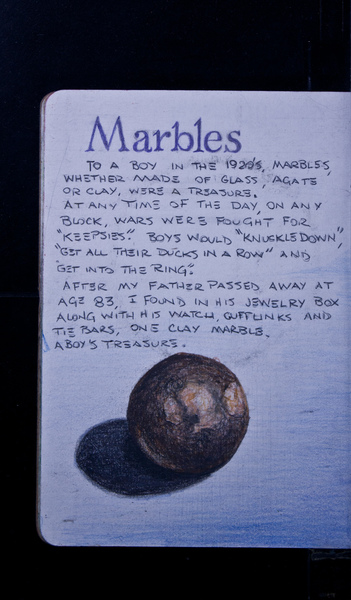 Marbles
TO A BOY IN THE 1920'S, MARBLES,
WHETHER MADE OF GLASS, AGATE
OR CLAY, WERE A TREASURE.
AT ANY TIME OF THE DAY, ON ANY
BLOCK, WARS WERE FOUGHT FOR
"KEEPSIES". BOYS WOULD "KNUCKLE DOWN",
"GET ALL THEIR DUCKS IN A ROW" AND
"GET INTO THE RING".
AFTER MY FATHER PASSED AWAY AT
AGE 83, I FOUND IN HIS JEWELRY BOX
ALONG WITH HIS WATCH, CUFFLINKS AND
TIE BARS, ONE CLAY MARBLE.
A BOY'S TREASURE.